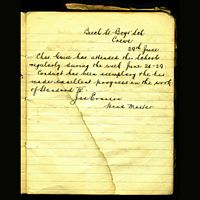 Beech St. Boys' Sch
Crewe
29th June
Chas. has attended this School
regularly during the week June 24-29.
Conduct has been exemplary & he has
made excellent progress in the work
of Standard
Jas
Head Master